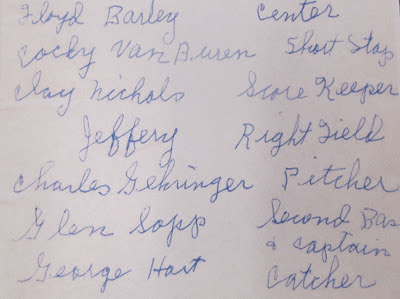 Floyd Barley Center
Cocky Van Buren Short Stop
Clay Nichols Score Keeper
Jeffery Right Field
Charles Gehringer Pitcher
Glen Sopp Second Bas
& Captain
George Hart Catcher